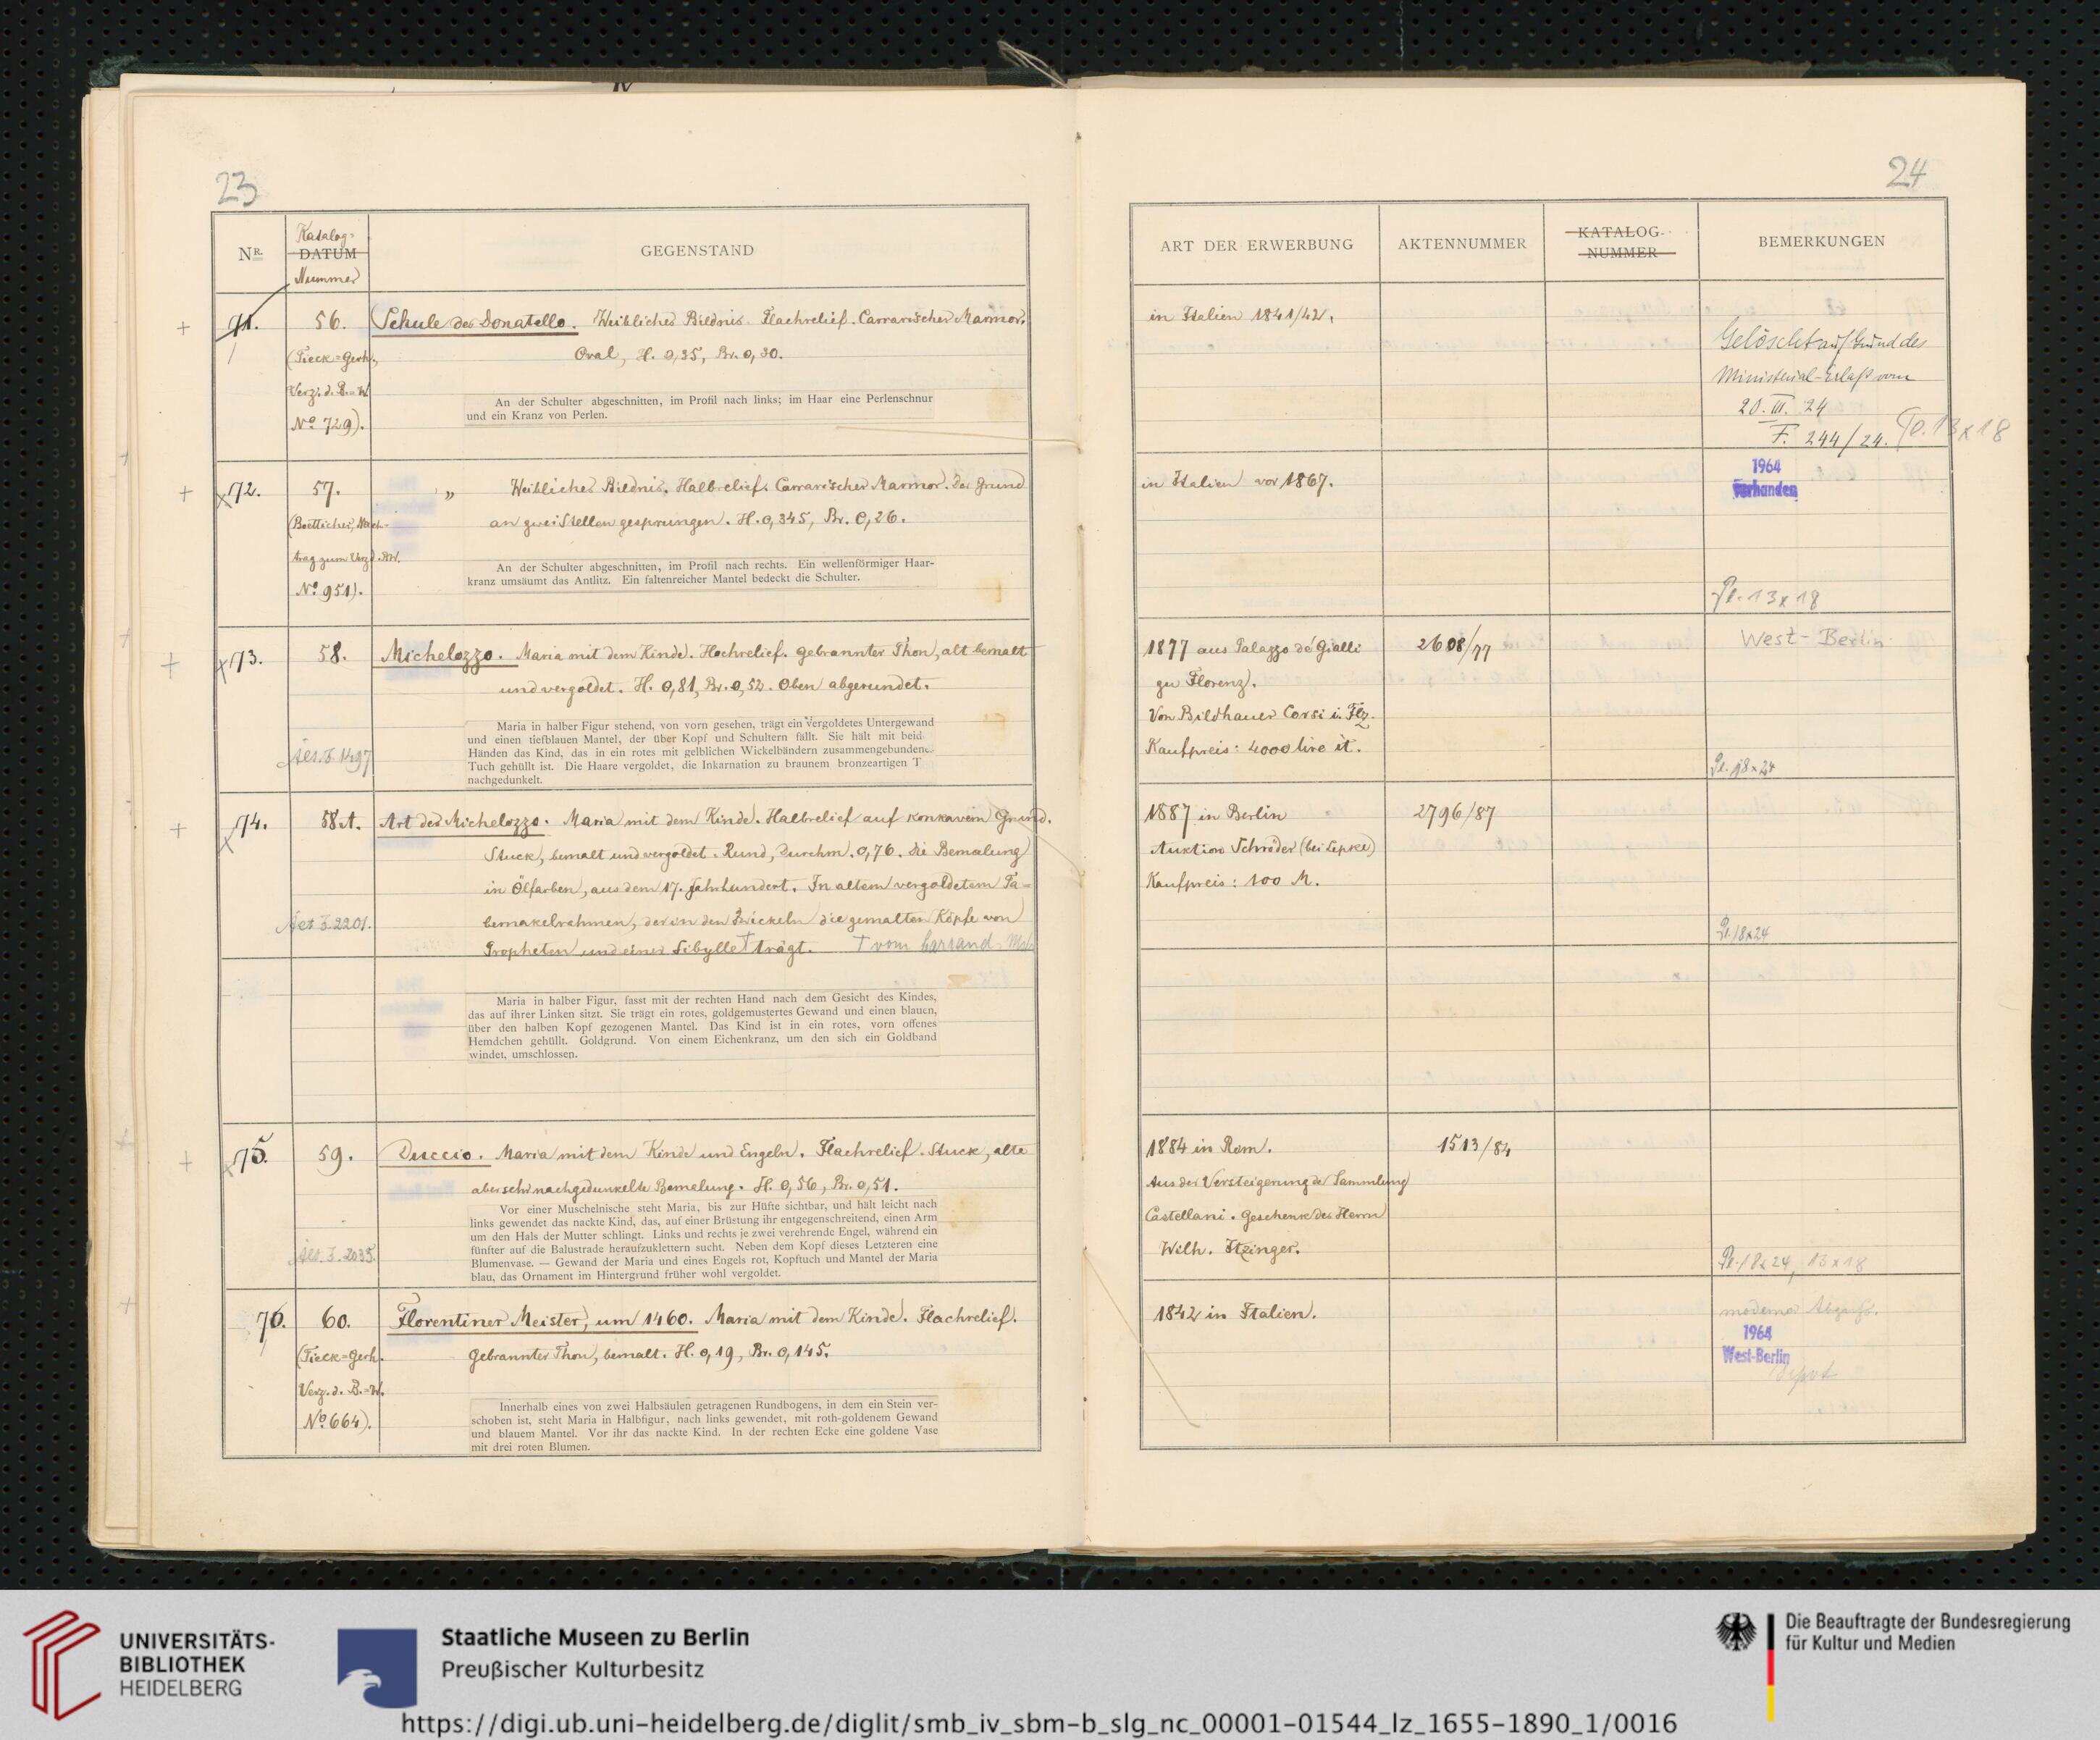 23
Nr.
Katalog-
DATUM
Nummer
GEGENSTAND
71.
56.
Schule des Donatello. Weibliches Bildnis. Flachrelief. Carrarischer Marmor.
Oval, H. 0,35, Br. 0,30.
(Tieck=Gerh.,
Verz. d. B.=W.
No 729).
An der Schulter abgeschnitten, im Profil nach links; im Haar eine Perlenschnur
und ein Kranz von Perlen.
72.
57.
„ Weibliches Bildnis. Halbrelief. Carrarischer Marmor. Der Grund
an zwei Stellen gesprungen. H. 0,345, Br. 0,26.
(Boetticher, Nach-
trag zum Verz. d. BW.
No 951).
An der Schulter abgeschnitten, im Profil nach rechts. Ein wellenförmiger Haar-
kranz umsäumt das Antlitz. Ein faltenreicher Mantel bedeckt die Schulter.
73.
58.
Michelozzo. Maria mit dem Kinde. Hochrelief. Gebrannter Thon, alt bemalt
und vergoldet. H. 0,81, Br. 0,52. Oben abgerundet.
Maria in halber Figur stehend, von vorn gesehen, trägt ein vergoldetes Untergewand
und einen tiefblauen Mantel, der über Kopf und Schultern fällt. Sie hält mit beid
Händen das Kind, das in ein rotes mit gelblichen Wickelbändern zusammengebundene
Tuch gehüllt ist. Die Haare vergoldet, die Inkarnation zu braunem bronzeartigen T
nachgedunkelt.
Aes. I. 1497
74.
58A.
Art des Michelozzo. Maria mit dem Kinde. Halbrelief auf konkavem Grund.
Stuck, bemalt und vergoldet. Rund, Durchm. 0,76. Die Bemalung
in Ölfarben, aus dem 17. Jahrhundert. In altem vergoldetem Ta-
bernakelrahmen, der in den Zwickeln die gemalten Köpfe von
Propheten und einer Sibylle † trägt. † vom Carrand-
Aes I. 2201.
Maria in halber Figur, fasst mit der rechten Hand nach dem Gesicht des Kindes,
das auf ihrer Linken sitzt. Sie trägt ein rotes, goldgemustertes Gewand und einen blauen,
über den halben Kopf gezogenen Mantel. Das Kind ist in ein rotes, vorn offenes
Hemdchen gehüllt. Goldgrund. Von einem Eichenkranz, um den sich ein Goldband
windet, umschlossen.
75.
59.
Duccio. Maria mit dem Kinde und Engeln. Flachrelief. Stuck, alte
aber sehr nachgedunkelte Bemalung. H. 0,56, Br. 0,51.
Vor einer Muschelnische steht Maria, bis zur Hüfte sichtbar, und hält leicht nach
links gewendet das nackte Kind, das, auf einer Brüstung ihr entgegenschreitend, einen Arm
um den Hals der Mutter schlingt. Links und rechts je zwei verehrende Engel, während ein
fünfter auf die Balustrade heraufzuklettern sucht. Neben dem Kopf dieses Letzteren eine
Blumenvase. — Gewand der Maria und eines Engels rot, Kopftuch und Mantel der Maria
blau, das Ornament im Hintergrund früher wohl vergoldet.
Aes. I. 2035.
76.
60.
Florentiner Meister, um 1460. Maria mit dem Kinde. Flachrelief.
Gebrannter Thon, bemalt. H. 0,19, Br. 0,145.
(Tieck=Gerh.
Verz. d. B.=W.
No 664).
Innerhalb eines von zwei Halbsäulen getragenen Rundbogens, in dem ein Stein ver-
schoben ist, steht Maria in Halbfigur, nach links gewendet, mit roth-goldenem Gewand
und blauem Mantel. Vor ihr das nackte Kind. In der rechten Ecke eine goldene Vase
mit drei roten Blumen.
24
ART DER ERWERBUNG
AKTENNUMMER
KATALOG-
NUMMER
BEMERKUNGEN
in Italien 1841/42.
Gelöscht auf Grund des
Ministerial-Erlaß vom
20. III. 24
F. 244/24.
Pl. 13x18
in Italien vor 1867.
1964
Vorhanden
Pl. 13x18
1877 aus Palazzo de' Gialli
zu Florenz.
Von Bildhauer Corsi in Flz.
Kaufpreis: 4000 lire it.
2608/77
West-Berlin
Pl. 18x24
1887 in Berlin
Auktion Schröder (bei Lepke)
Kaufpreis: 100 M.
2796/87
Pl. 18x24
1884 in Rom.
Aus der Versteigerung der Sammlung
Castellani. Geschenk des Herrn
Wilh. Itzinger.
1513/84
Pl. 18x24, 13x18
1842 in Italien.
moderner Abguß.
1964
West-Berlin
UNIVERSITÄTS-
BIBLIOTHEK
HEIDELBERG
Staatliche Museen zu Berlin
Preußischer Kulturbesitz
Die Beauftragte der Bundesregierung
für Kultur und Medien
https://digi.ub.uni-heidelberg.de/diglit/smb_iv_sbm-b_slg_nc_00001-01544_lz_1655-1890_1/0016